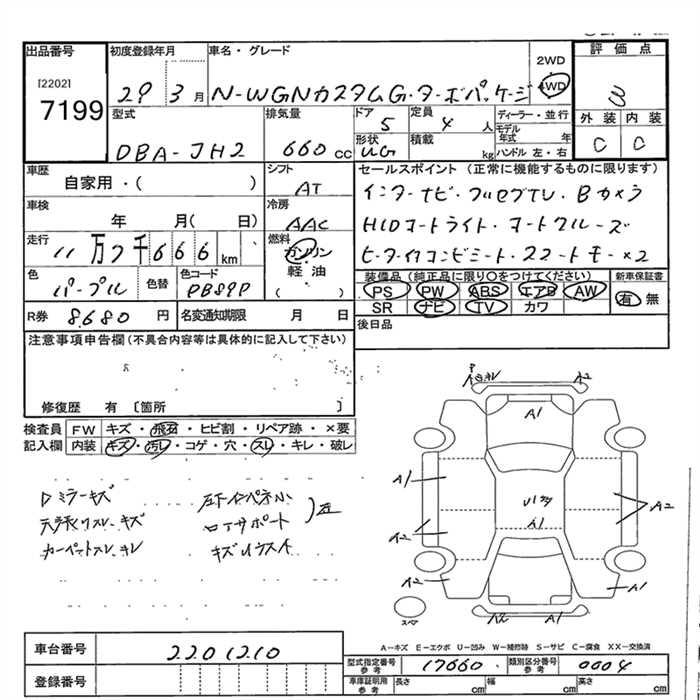 出品番号 初度登録年月 車名・グレード 2WD 4WD 評価点
[2202]
7199
29年 3月 N-WGNカスタムG・ターボパッケージ 3
型式 排気量 ドア 定員 ディーラー・並行 外装 内装
DBA-JH2 660cc 5 4人 モデル年式 年 C C
形状 積載 ハンドル 左・右
UG kg
車歴 シフト セールスポイント (正常に機能するものに限ります)
自家用・( ) AT インターナビ・フルセグTV・Bカメラ
車検 冷房 HIDコートライト・オートクルーズ
年 月( 日) AAC
走行 燃料 ヒーター付コンビシート・スマートキー×2
11万7千666km ガソリン
色 色替 色コード 軽油 装備品 (純正品に限り〇をつけてください) 新車保証書
パープル PB89P ( ) PS PW ABS エアB AW 有 無
SR ナビ TV カワ
R券 8,680円 名変通知期限 月 日 後日品
注意事項申告欄(不具合内容等は具体的に記入して下さい)
修復歴 有 〔箇所 〕
検査員 FW キズ・飛石・ヒビ割・リペア跡・×要
記入欄 内装 キズ・汚レ・コゲ・穴・スレ・キレ・破レ
Dミラーキズ
カーペットスレ、キレ
コアサポート
A2 A1 A1 A2 A2 A2 A1 A1 A2 A1 U1 A1
スペア
A-キズ E-エクボ U-凹み W-補修跡 S-サビ C-腐食 XX-交換済
車台番号 2201210
型式指定番号 参考 17660 類別区分番号 参考 0004
登録番号
車庫証明用 参考 長さ cm 幅 cm 高さ cm